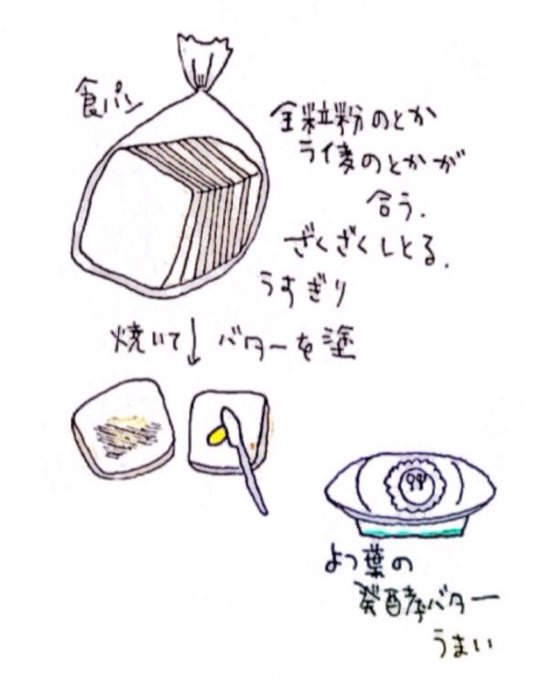 食パン
全粒粉のとか
ライ麦のとかが
合う.
ざくざくしとる.
うすぎり
焼いて↓ バターを塗
よつ葉の
発酵バター
うまい